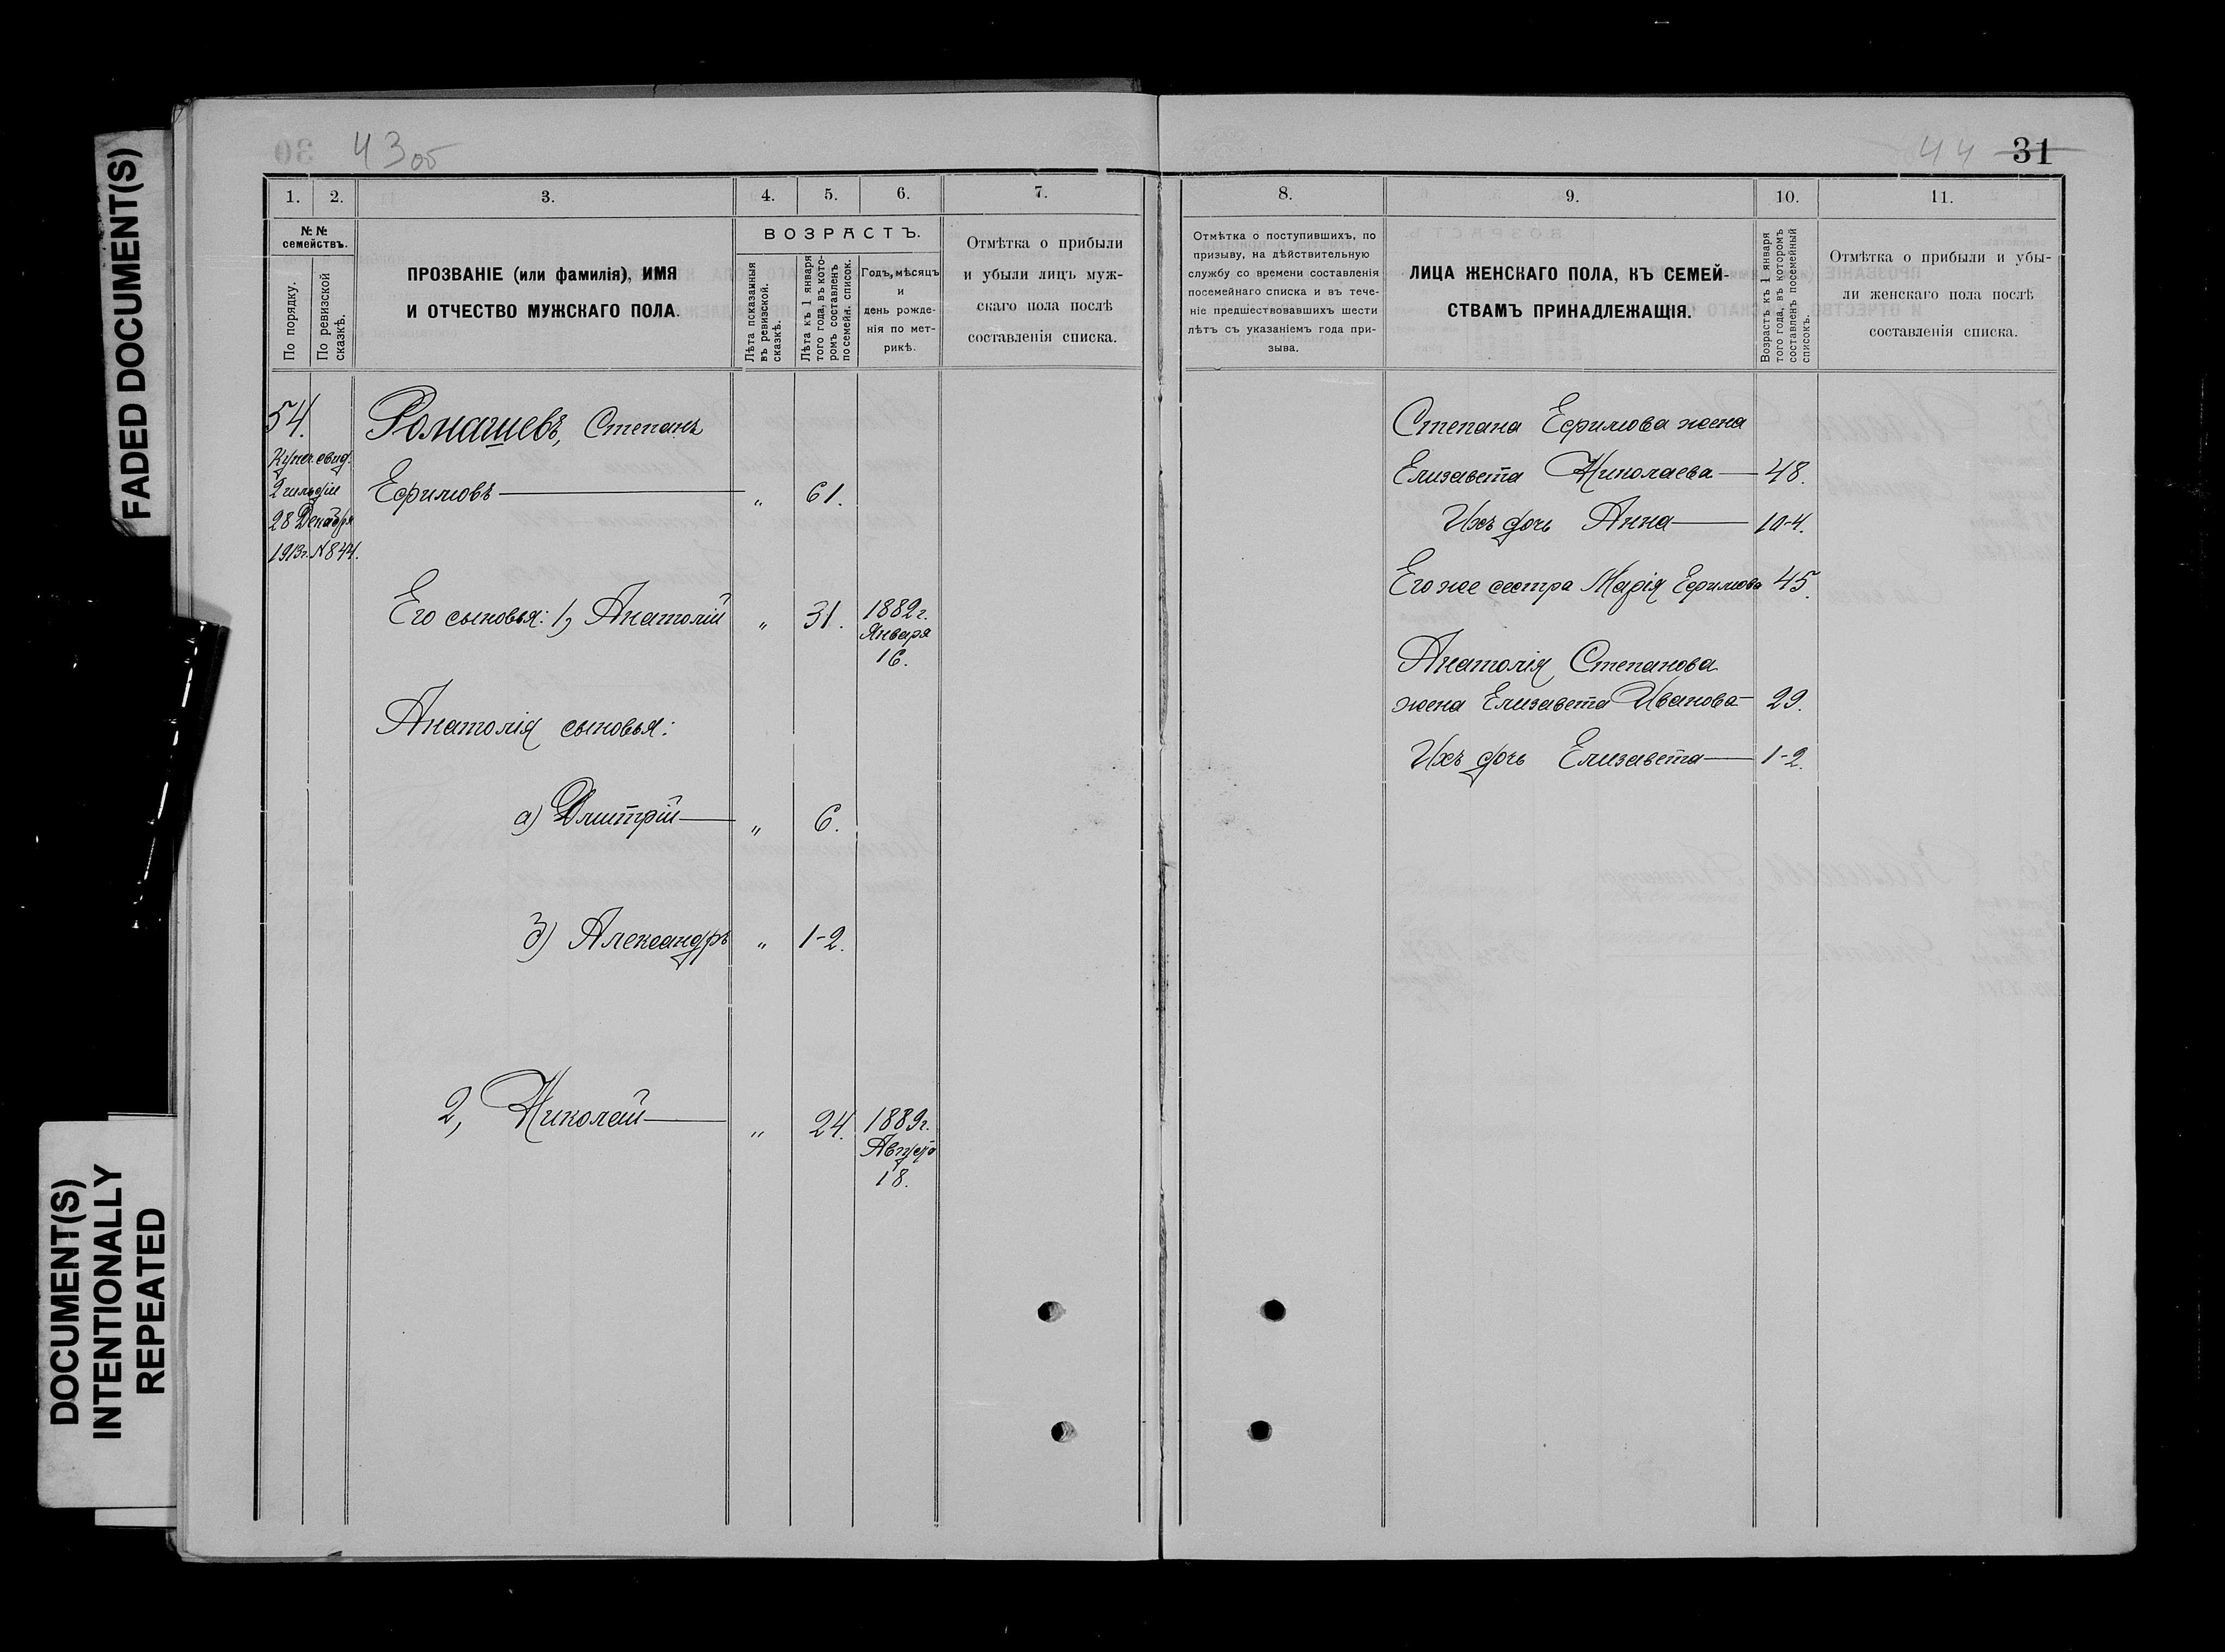 FADED DOCUMENT(S)
DOCUMENT(S)
INTENTIONALLY
REPEATED
43 об
1. 2. 3. 4. 5. 6. 7.
№ №
семействъ.
По порядку.
По ревизской
сказкѣ.
ПРОЗВАНІЕ (или фамилія), ИМЯ
И ОТЧЕСТВО МУЖСКАГО ПОЛА.
ВОЗРАСТЪ.
Лѣта показанныя
въ ревизской.
сказкѣ.
Лѣта къ 1 января
того года, въ кото-
ромъ составленъ
посемейн. список.
Годъ, мѣсяцъ
и
день рожде-
нія по мет-
рикѣ.
Отмѣтка о прибыли
и убыли лицъ муж-
скаго пола послѣ
составленія списка.
54.
Купеч. свид.
2 гильдіи
28 Декабря
1913г. № 844.
Ромашевъ, Степанъ
Ефимовъ — " 61.
Его сыновья: 1, Анатолій " 31. 1882г.
Января
16.
Анатолія сыновья:
а) Дмитрій — " 6.
б) Александръ " 1-2.
2, Николай — " 24. 1889г.
Августа
18.
44 31
8. 9. 10. 11.
Отмѣтка о поступившихъ, по
призыву, на дѣйствительную
службу со времени составленія
посемейнаго списка и въ тече-
ніе предшествовавшихъ шести
лѣтъ съ указаніемъ года при-
зыва.
ЛИЦА ЖЕНСКАГО ПОЛА, КЪ СЕМЕЙ-
СТВАМЪ ПРИНАДЛЕЖАЩІЯ.
Возрастъ къ 1 января
того года, въ которомъ
составленъ посемейный
списокъ.
Отмѣтка о прибыли и убы-
ли женскаго пола послѣ
составленія списка.
Степана Ефимова жена
Елизавета Николаева — 48.
Ихъ дочь Анна — 10-4.
Его же сестра Марія Ефимова 45.
Анатолія Степанова
жена Елизавета Иванова — 29.
Ихъ дочь Елизавета — 1-2.